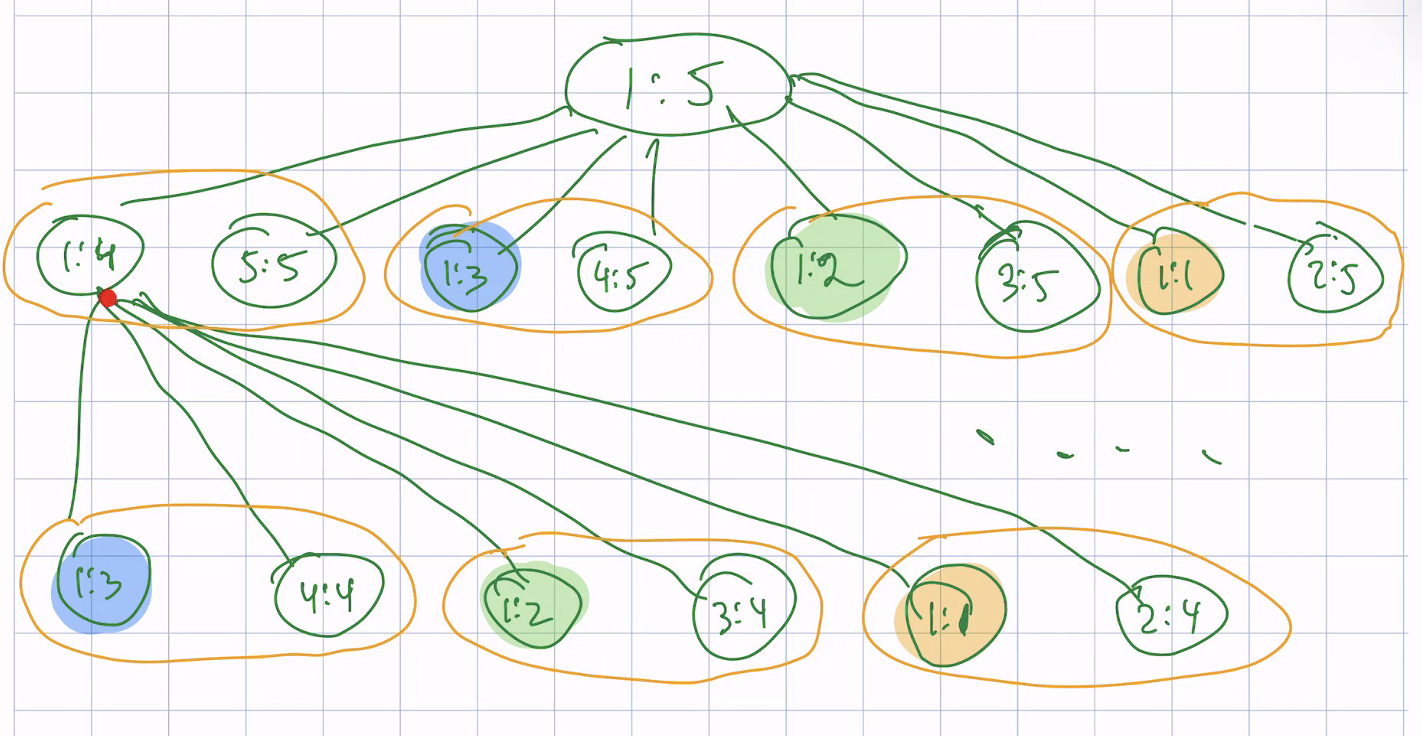 1:5
1:4 5:5 1:3 4:5 1:2 3:5 1:1 2:5
1:3 4:4 1:2 3:4 1:1 2:4